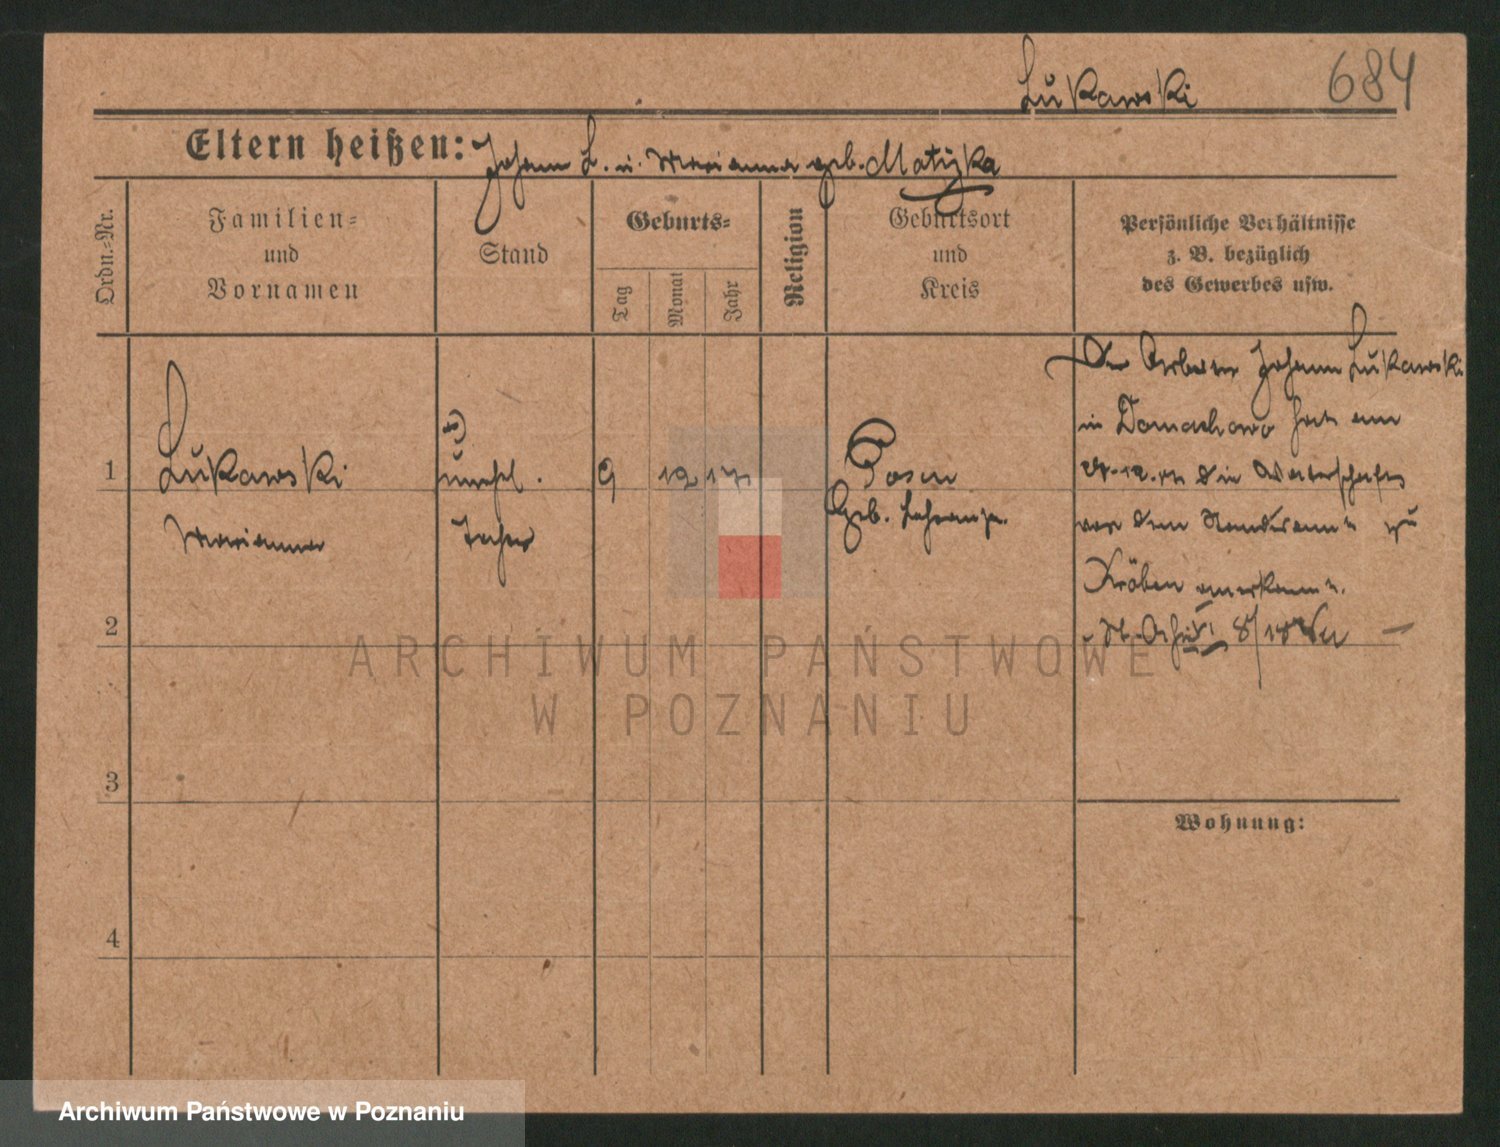 Lukawski
684
Eltern heißen: Johann L. u. Marianna geb. Matyka
Ordn.-Nr.
Familien-
und
Vornamen
Stand
Geburts-
Tag
Monat
Jahr
Religion
Geburtsort
und
Kreis
Persönliche Verhältnisse
z. B. bezüglich
des Gewerbes usw.
1
Lukawski
Marianna
unehel.
Tochter
9
12
17
Posen
Geb.
Der Arbeiter Johann Lukawski
in Domachowo hat am
die Vaterschaft
vor dem Standesamt zu
Kröben anerkannt.
2
3
4
Wohnung:
ARCHIWUM PAŃSTWOWE
W POZNANIU
Archiwum Państwowe w Poznaniu